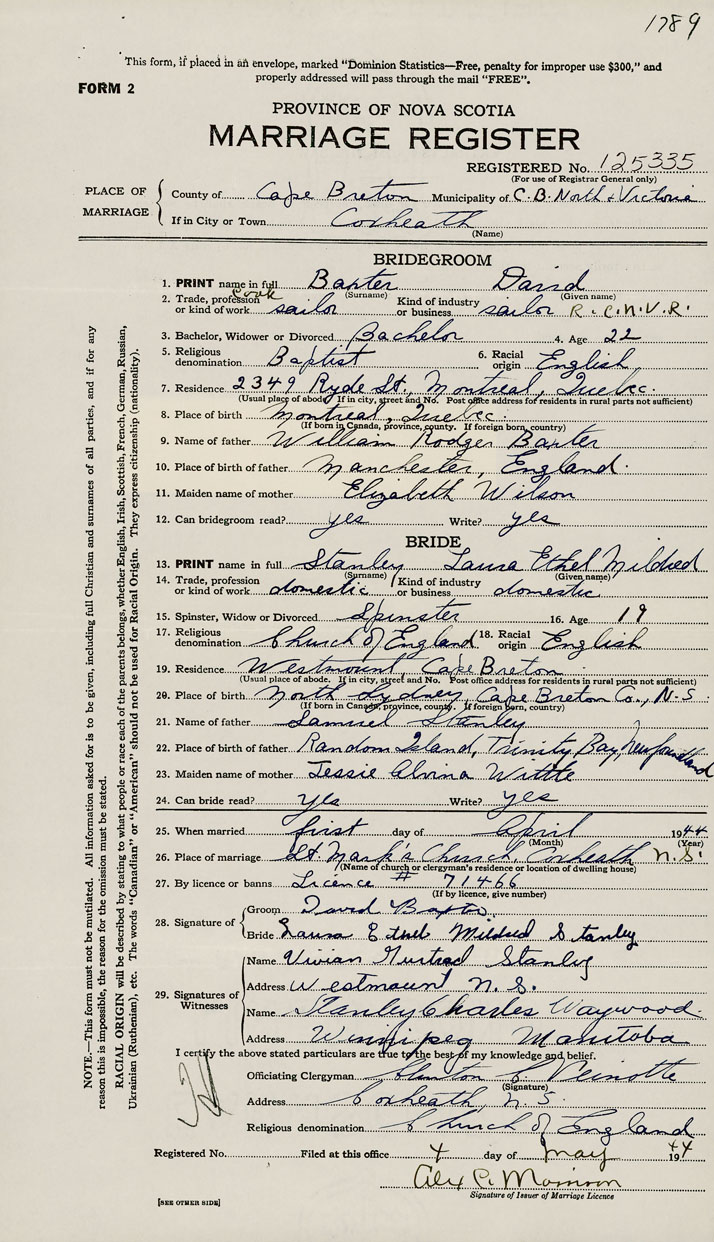 1789
This form, if placed in an envelope, marked "Dominion Statistics—Free, penalty for improper use $300," and
properly addressed will pass through the mail "FREE".
FORM 2
PROVINCE OF NOVA SCOTIA
MARRIAGE REGISTER
REGISTERED No. 125335
(For use of Registrar General only)
PLACE OF MARRIAGE
County of Cape Breton Municipality of C.B. North & Victoria
If in City or Town Coxheath
(Name)
BRIDEGROOM
1. PRINT name in full Baxter David
(Surname) (Given name)
cook
2. Trade, profession or kind of work sailor Kind of industry or business sailor R.C.N.V.R.
3. Bachelor, Widower or Divorced Bachelor 4. Age 22
5. Religious denomination Baptist 6. Racial origin English
7. Residence 2349 Ryde St., Montreal, Quebec.
(Usual place of abode. If in city, street and No. Post office address for residents in rural parts not sufficient)
8. Place of birth Montreal, Quebec.
(If born in Canada, province, county. If foreign born, country)
9. Name of father William Rodger Baxter
10. Place of birth of father Manchester, England.
11. Maiden name of mother Elizabeth Wilson
12. Can bridegroom read? yes Write? yes
BRIDE
13. PRINT name in full Stanley Laura Ethel Mildred
(Surname) (Given name)
14. Trade, profession or kind of work domestic Kind of industry or business domestic
15. Spinster, Widow or Divorced Spinster 16. Age 19
17. Religious denomination Church of England 18. Racial origin English
19. Residence Westmount Cape Breton
(Usual place of abode. If in city, street and No. Post office address for residents in rural parts not sufficient)
20. Place of birth North Sydney, Cape Breton Co., N.S.
(If born in Canada, province, county. If foreign born, country)
21. Name of father Samuel Stanley
22. Place of birth of father Random Island, Trinity Bay, Newfoundland
23. Maiden name of mother Jessie Alvina Wittle
24. Can bride read? yes Write? yes
25. When married first day of April 1944
(Month) (Year)
26. Place of marriage St. Mark's Church, Coxheath N.S.
(Name of church or clergyman's residence or location of dwelling house)
27. By licence or banns Licence # 71466
(If by licence, give number)
28. Signature of
Groom David Baxter
Bride Laura Ethel Mildred Stanley
29. Signatures of Witnesses
Name Vivian Stanley
Address Westmount N.S.
Name Stanley Charles Waywood.
Address Winnipeg Manitoba
I certify the above stated particulars are true to the best of my knowledge and belief.
Officiating Clergyman
(Signature)
Address Coxheath, N.S.
Religious denomination Church of England
Registered No. Filed at this office 4 day of May 1944
Alex P. Morrison
Signature of Issuer of Marriage Licence
[SEE OTHER SIDE]
NOTE.—This form must not be mutilated. All information asked for is to be given, including full Christian and surnames of all parties, and if for any
reason this is impossible, the reason for the omission must be stated.
RACIAL ORIGIN will be described by stating to what people or race each of the parents belongs, whether English, Irish, Scottish, French, German, Russian,
Ukrainian (Ruthenian), etc. The words "Canadian" or "American" should not be used for Racial Origin. They express citizenship (nationality).